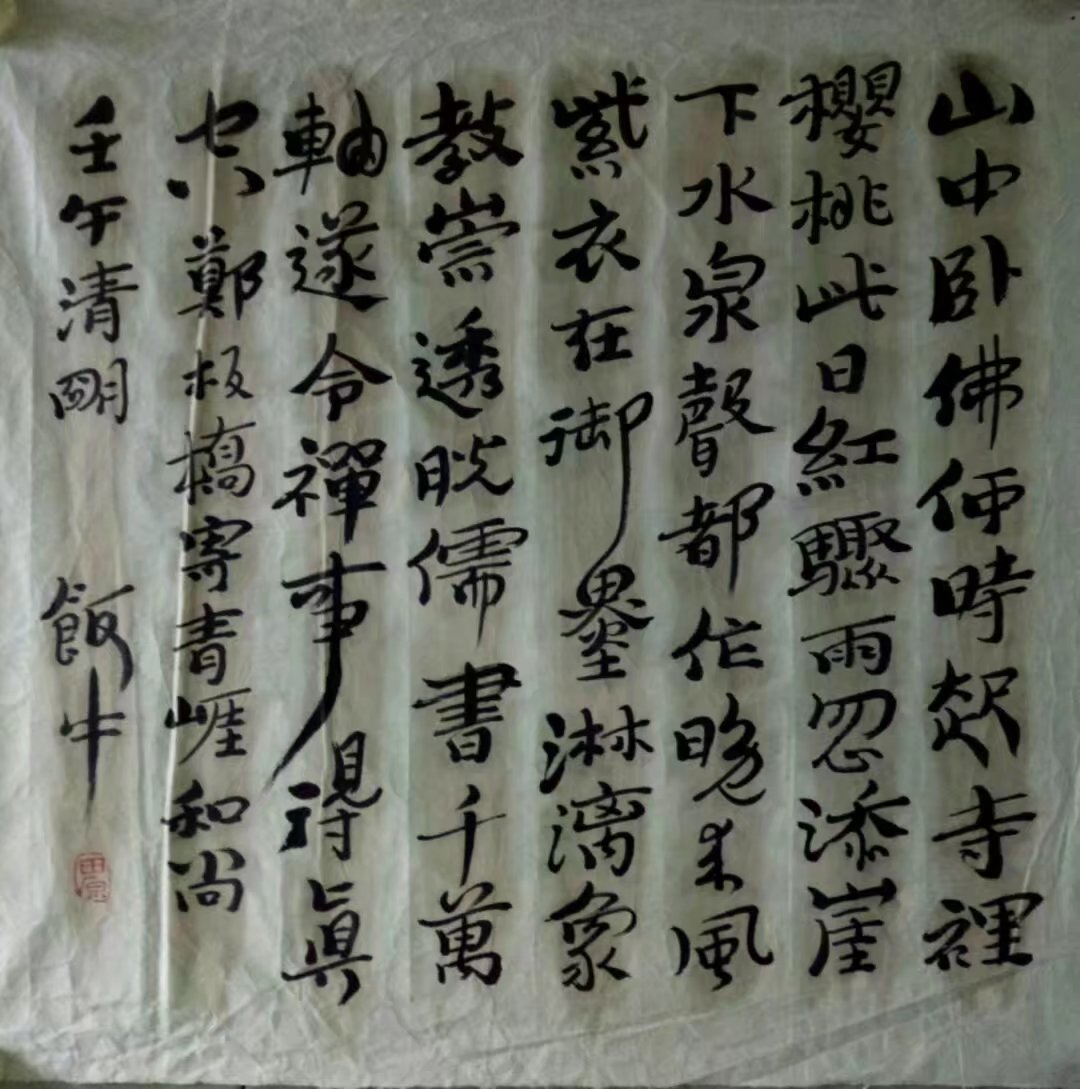 山中卧佛何時起寺裡
櫻桃此日紅驟雨忽添崖
下水泉聲都作晚来風
紫衣在御墨淋漓象
教崇透脱儒書千萬
軸遂令禪事得真
空鄭板橋寄青崖和尚
壬午清明 飯牛
田原